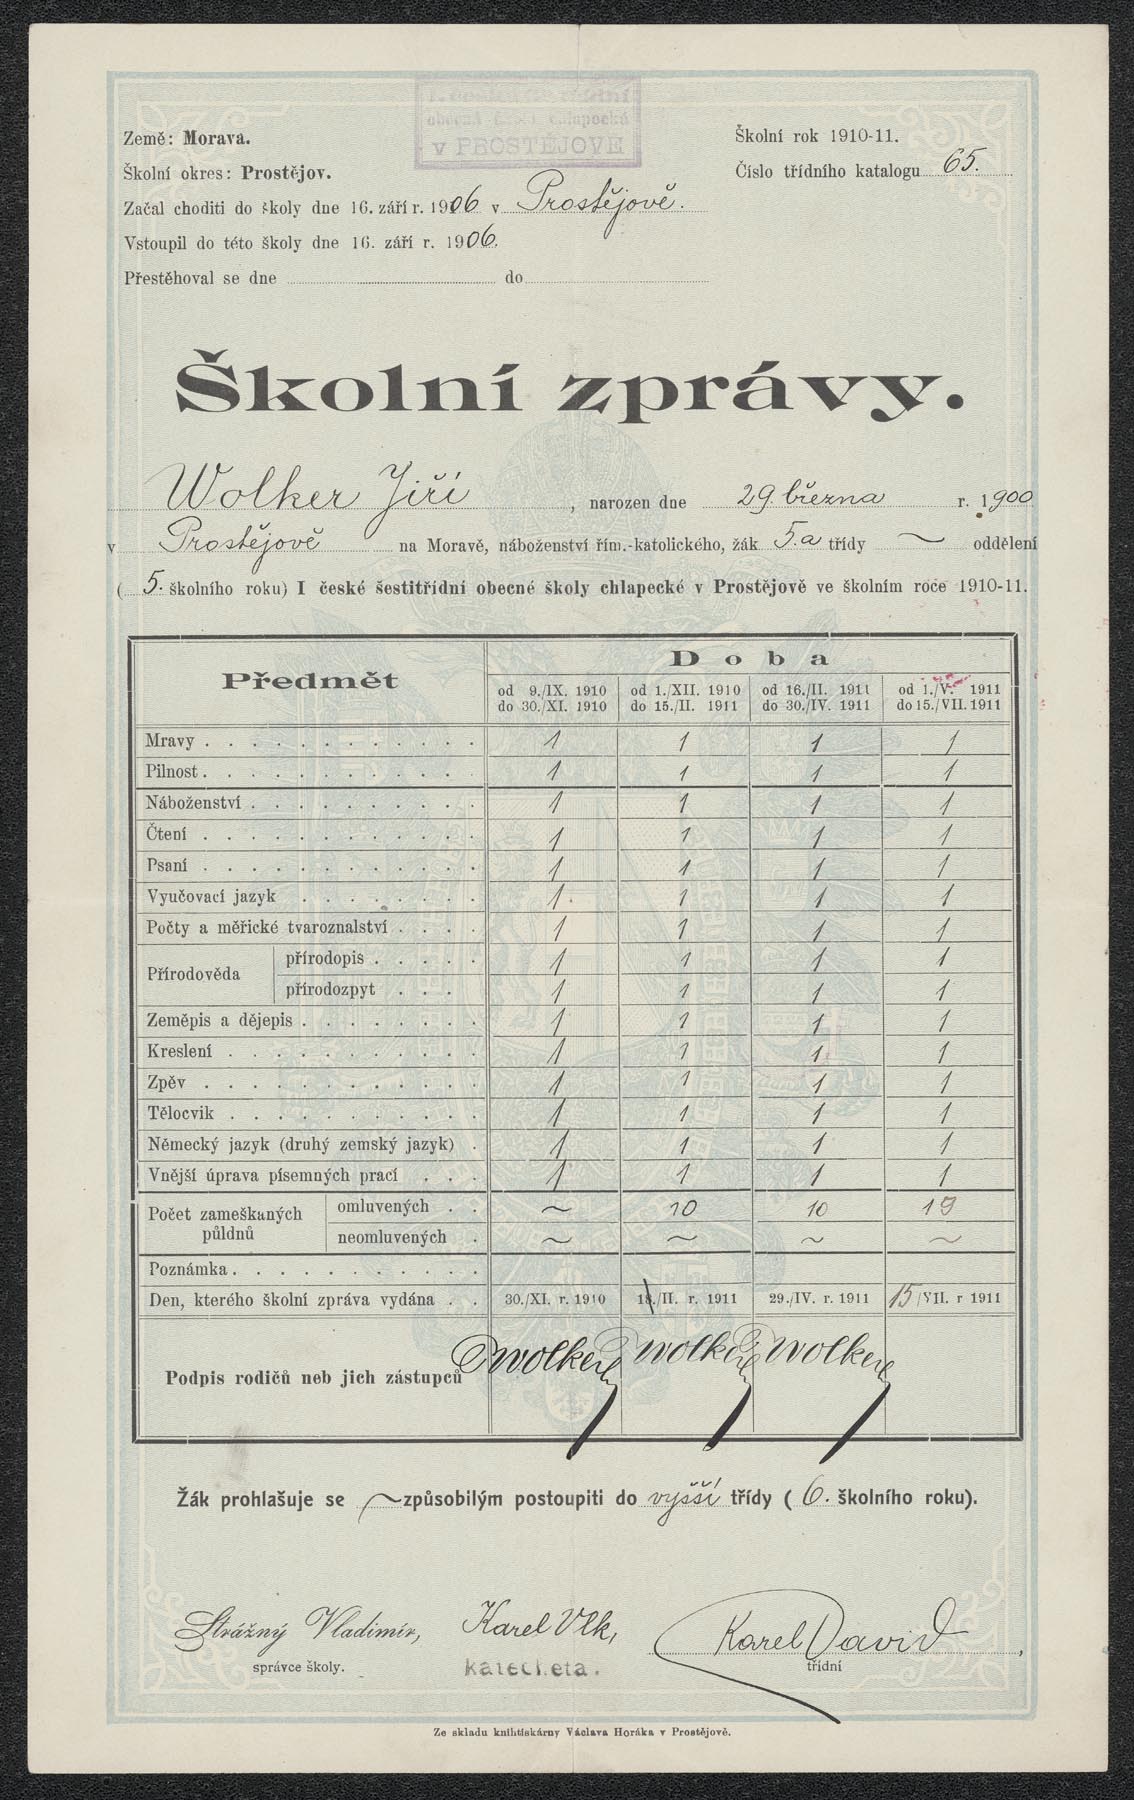 I. česká
obecná škola chlapecká
v PROSTĚJOVĚ
Země: Morava.
Školní rok 1910-11.
Školní okres: Prostějov.
Číslo třídního katalogu 65.
Začal choditi do školy dne 16. září r. 1906 v Prostějově.
Vstoupil do této školy dne 16. září r. 1906.
Přestěhoval se dne do
Školní zprávy.
Wolker Jiří, narozen dne 29. března r. 1900
v Prostějově na Moravě, náboženství řím.-katolického, žák 5.a třídy ~ oddělení
( 5. školního roku) I české šestitřídní obecné školy chlapecké v Prostějově ve školním roce 1910-11.
Předmět Doba
od 9./IX. 1910 do 30./XI. 1910 od 1./XII. 1910 do 15./II. 1911 od 16./II. 1911 do 30./IV. 1911 od 1./V. 1911 do 15./VII. 1911
Mravy 1 1 1 1
Pilnost 1 1 1 1
Náboženství 1 1 1 1
Čtení 1 1 1 1
Psaní 1 1 1 1
Vyučovací jazyk 1 1 1 1
Počty a měřické tvaroznalství 1 1 1 1
Přírodověda přírodopis 1 1 1 1
přírodozpyt 1 1 1 1
Zeměpis a dějepis 1 1 1 1
Kreslení 1 1 1 1
Zpěv 1 1 1 1
Tělocvik 1 1 1 1
Německý jazyk (druhý zemský jazyk) 1 1 1 1
Vnější úprava písemných prací 1 1 1 1
Počet zameškaných půldnů omluvených ~ 10 10 19
neomluvených ~ ~ ~ ~
Poznámka
Den, kterého školní zpráva vydána 30./XI. r. 1910 18./II. r. 1911 29./IV. r. 1911 15/VII. r 1911
Podpis rodičů neb jich zástupců Wolker Wolker Wolker
Žák prohlašuje se ~ způsobilým postoupiti do vyšší třídy ( 6. školního roku).
Strážný Vladimír, Karel Vlk, Karel David,
správce školy. katecheta. třídní
Ze skladu knihtiskárny Václava Horáka v Prostějově.